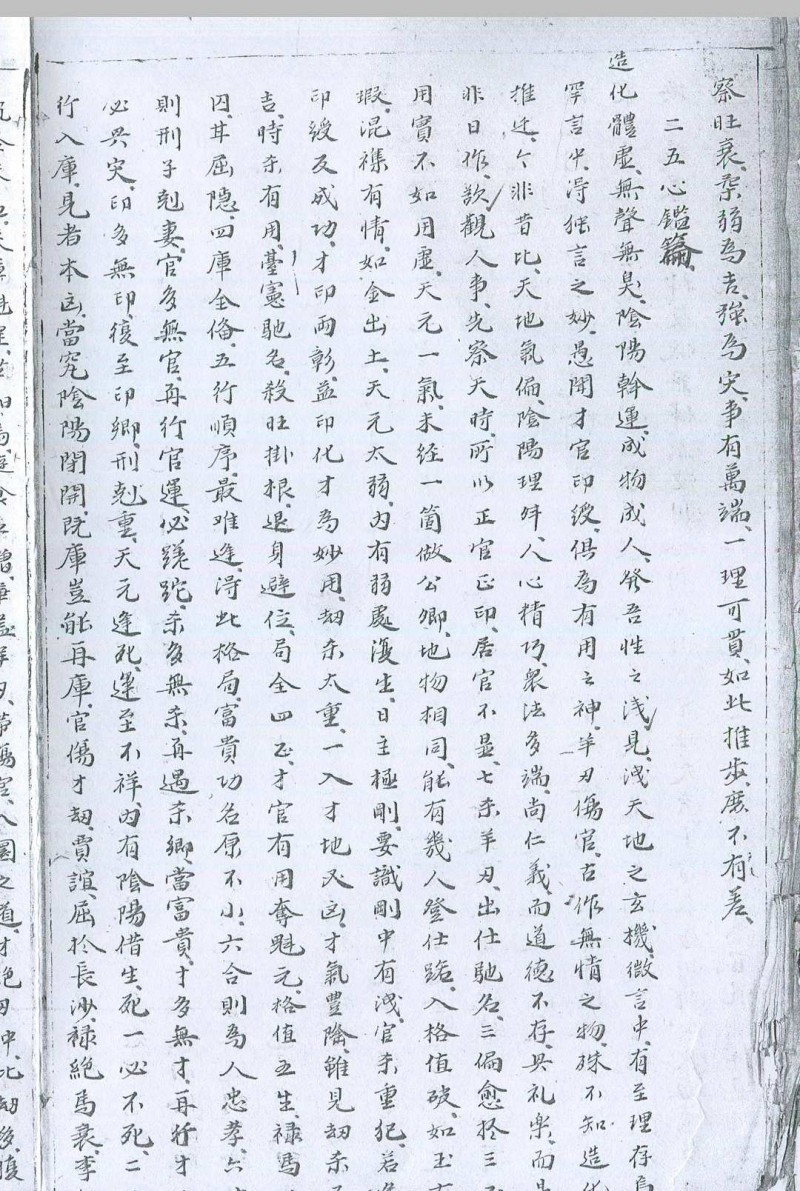 察旺衰、柔弱為吉、強為灾、事有萬端、一理可貫、如此推步、庶不有差、
二五心鑑篇
造化體虛、無聲無臭、陰陽斡運、成物成人、發吾性之浅見、洩天地之玄機、微言中、有至理存焉
罕言中、淂独言之妙、愚聞才官印绶、俱為有用之神、羊刃傷官、古作無情之物、殊不知造化
推迁、今非昔比、天地氣偏、陰陽理舛、人心精巧、衆法多端、尚仁義、而道德不存、兴礼乐、而
非日作、欲觀人事、先察天時、所以正官正印、居官不显、七杀羊刃、出仕馳名、三偏愈於三正
用實不如用虛、天元一氣、未经一箇做公卿、地物相同、能有幾人登仕路、入格值破、如玉有
瑕、混雜有情、如金出土、天元太弱、內有弱處復生、日主極剛、要識剛中有洩、官杀重犯、若
印绶反成功、才印両彰、益印化才為妙用、刼杀太重、一入才地又凶、才氣豐隆、雖見刼杀
吉、時杀有用、臺憲馳名、殺旺掛根、退身避位、局全四正、才官有用奪魁元、格值五生、禄馬
囚其屈隐、四庫全俻、五行順序最难逢、淂此格局、富貴功名原不小、六合則為人忠孝、六
則刑子尅妻、官多無官、再行官運、必蹉跎、杀多無杀、再遇杀鄉、當富貴、才多無才、再行才
必兴灾、印多無印、復至印鄉、刑尅重、天元逢死、運至不祥、內有陰陽借生、死一必不死、二
行入庫、見者本凶、當究陰陽閉開、既庫豈能再庫、官傷才刼、賈誼屈於長沙、禄絶馬衰、李